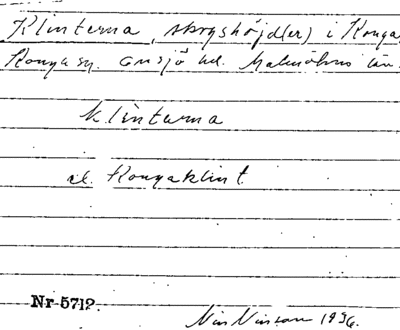 Klinterna, skogshöjd(er) i Ronga
Ronga sn. Onsjö hd. Malmöhus län.
Klinterna
el. Rongaklint.
Nr 5712.
Nils Nilsson 1936.